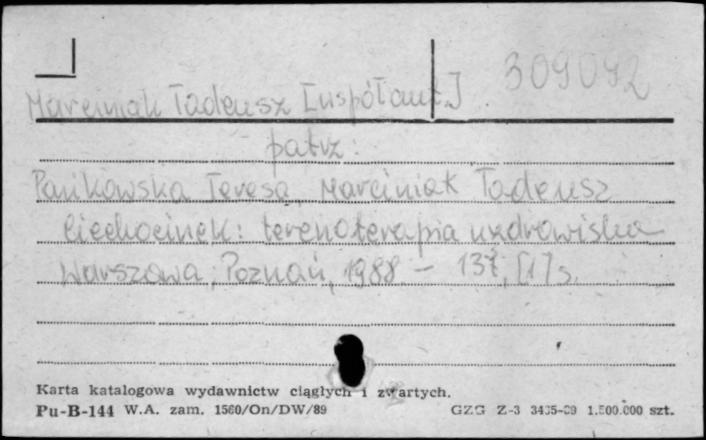 309092
Marciniak Tadeusz [współaut.]
patrz:
Pańkowska Teresa, Marciniak Tadeusz
Ciechocinek: terenoterapia uzdrowiska
Warszawa; Poznań, 1988. – 137, [1] s.
Karta katalogowa wydawnictw ciągłych i zwartych.
Pu-B-144 W.A. zam. 1560/On/DW/89 GZG Z-3 3435-89 1.500.000 szt.